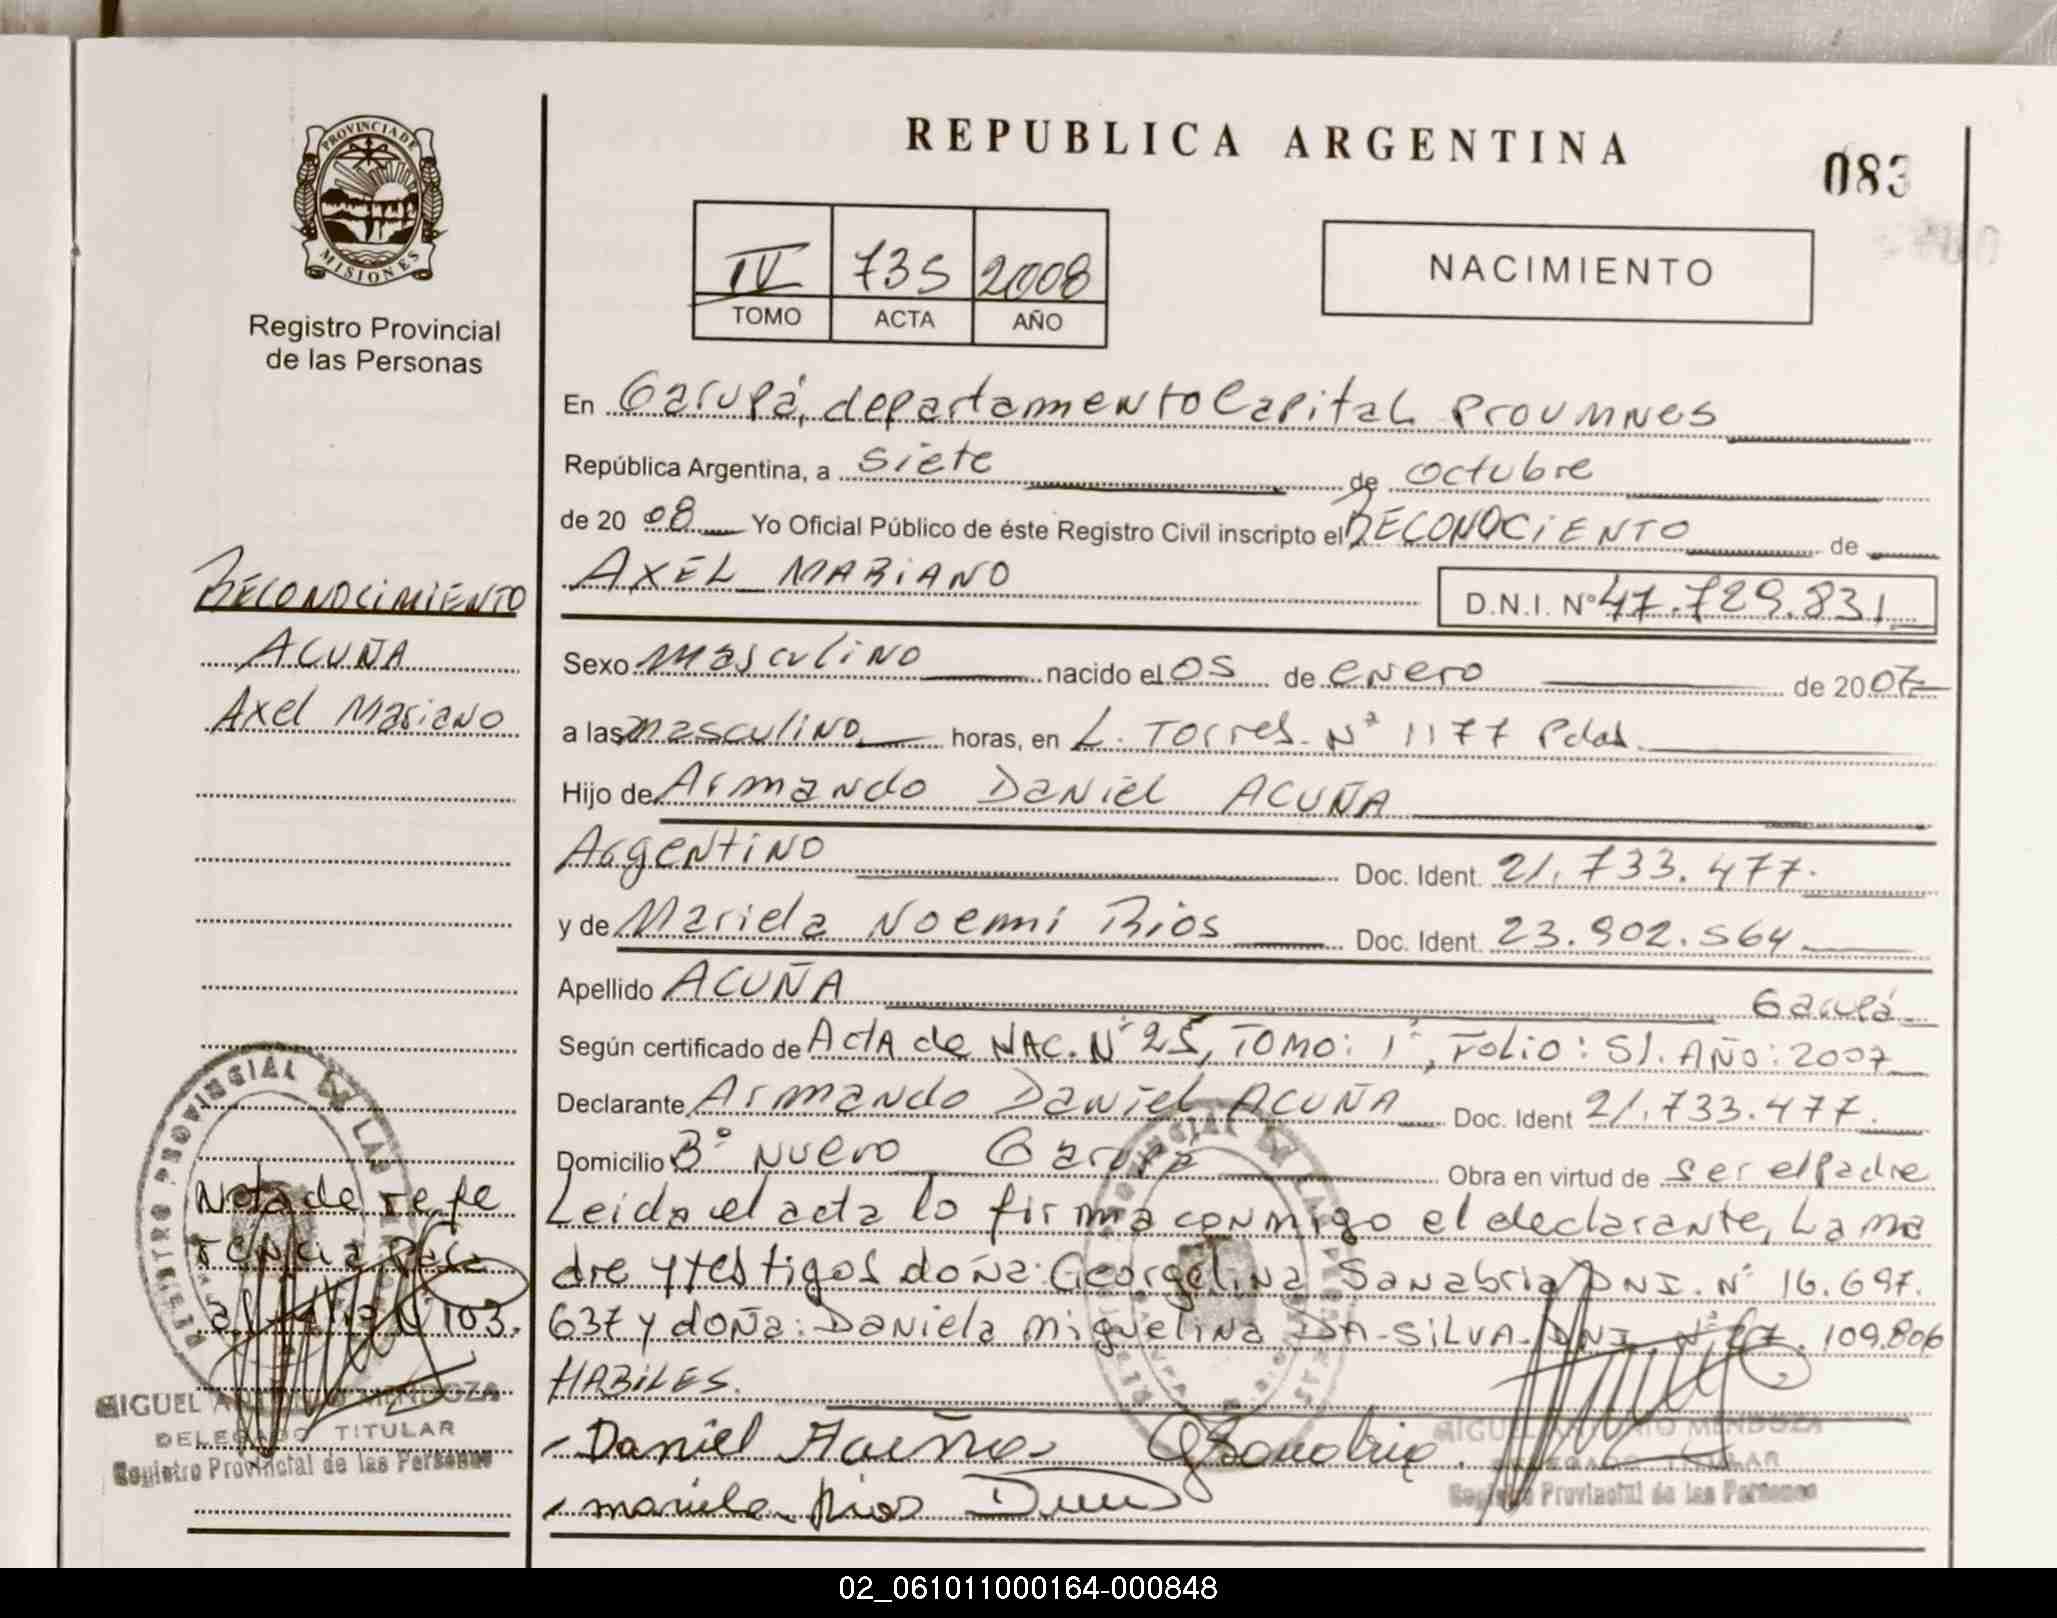 REPUBLICA ARGENTINA
083
PROVINCIA DE
MISIONES
Registro Provincial
de las Personas
IV 735 2008
TOMO ACTA AÑO
NACIMIENTO
En Garupá, departamento Capital Prov Mnes
República Argentina, a siete de octubre
de 2008 Yo Oficial Público de éste Registro Civil inscripto el RECONOCIENTO de
AXEL MARIANO D.N.I. Nº 47.729.831
Sexo masculino nacido el 05 de enero de 2007
a las masculino horas, en L. Torres. Nº 1177 Pdas.
Hijo de Armando Daniel ACUÑA
Argentino Doc. Ident. 21.733.477.
y de Mariela Noemi Rios Doc. Ident. 23.902.564
Apellido ACUÑA Garupá
Según certificado de Acta de NAC. Nº 25, TOMO: 1º, Folio: 51. AÑO: 2007
Declarante Armando Daniel ACUÑA Doc. Ident 21.733.477.
Domicilio Bº Nuevo Garupá Obra en virtud de ser el Padre
Leida el acta lo firma conmigo el declarante, La ma
dre y testigos doña: Georgelina Sanabria DNI. Nº 16.697.
637 y doña: Daniela Miguelina DA-SILVA-DNI Nº 27.109.806
HABILES.
Daniel Acuña GSanabria.
mariela Rios
MIGUEL ANTONIO MENDOZA
DELEGADO TITULAR
Registro Provincial de las Personas
RECONOCIMIENTO
ACUÑA
Axel Mariano
REGISTRO PROVINCIAL DE LAS
Nota de refe
rencia pasa
al folio Nº 103.
MIGUEL ANTONIO MENDOZA
DELEGADO TITULAR
Registro Provincial de las Personas
02_061011000164-000848